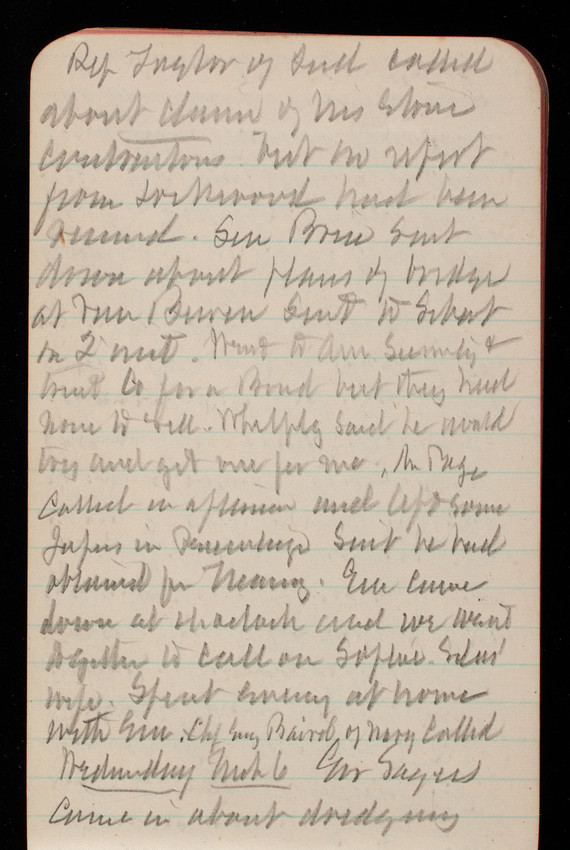 Rep Taylor of Ind called
about claim of Mrs Stone
Contractors but no report
from Lockwood had been
received. Sen Brice sent
down about plans of bridge
at Van Buren sent to Select
Com. Went to Am Security &
trust Co for a Bond but they had
none to sell. Whelpley said he would
try and get one for me. Mr Page
called in afternoon and left some
papers in Suit he had
obtained for. Em came
down at oclock and we went
together to call on Sophie
wife. Spent evening at home
with Em. Chf Eng Baird of Navy called
Wednesday Mch 6 Gov Sayers
came in about dredging